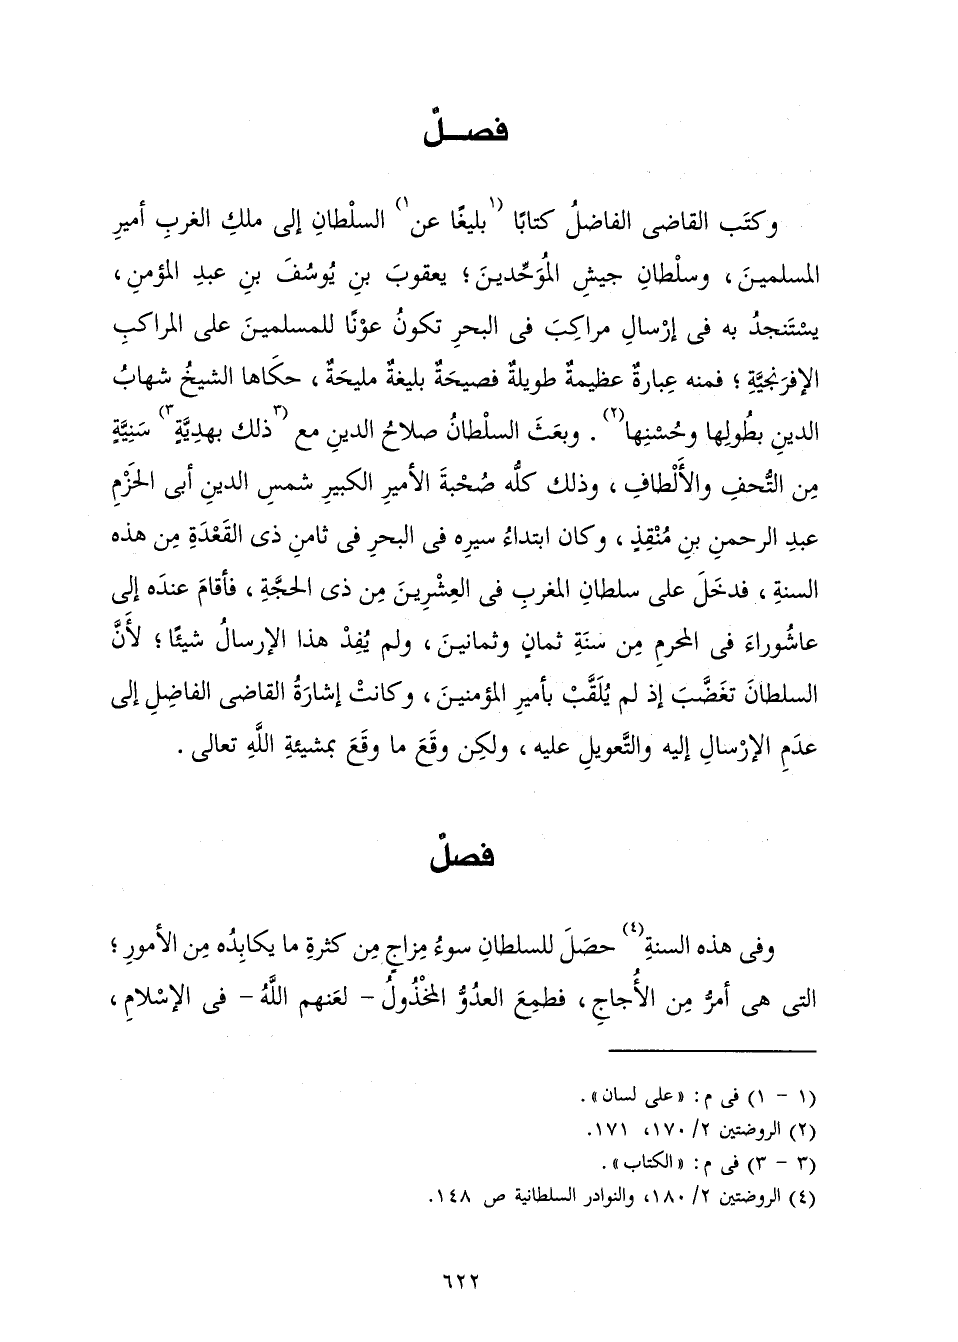 فصــلٌ
وكتَب القاضى الفاضلُ كتابًا (١بليغًا عن١) السلْطانِ إلى ملكِ الغربِ أميرِ
المسلمينَ، وسلْطانِ جيشِ المُوَحِّدينَ؛ يعقوبَ بنِ يُوسُفَ بنِ عبدِ المؤمنِ،
يسْتَنجدُ به فى إرْسالِ مراكِبَ فى البحرِ تكونُ عوْنًا للمسلمينَ على المراكبِ
الإفرَنجيَّةِ؛ فمنه عِبارةٌ عظيمةٌ طويلةٌ فصيحَةٌ بليغةٌ مليحَةٌ، حكَاها الشيخُ شهابُ
الدينِ بطُولِها وحُسْنِها(٢). وبعَثَ السلطانُ صلاحُ الدينِ مع (٣ذلك بهديَّةٍ٣) سَنِيَّةٍ
مِن التُّحفِ والأَلْطافِ، وذلك كلُّه صُحْبةَ الأميرِ الكبيرِ شمسِ الدينِ أبى الحَزْمِ
عبدِ الرحمنِ بنِ مُنْقِذٍ، وكان ابتداءُ سيرِه فى البحرِ فى ثامنِ ذى القَعْدَةِ مِن هذه
السنةِ، فدخَلَ على سلطانِ المغربِ فى العِشْرينَ مِن ذى الحجَّةِ، فأقامَ عندَه إلى
عاشُوراءَ فى المحرمِ مِن سنَةِ ثمانٍ وثمانينَ، ولم يُفِدْ هذا الإرسالُ شيئًا؛ لأنَّ
السلطانَ تغَضَّبَ إذ لم يُلَقَّبْ بأميرِ المؤمنينَ، وكانتْ إشارَةُ القاضى الفاضِلِ إلى
عدَمِ الإرْسالِ إليه والتَّعويلِ عليه، ولكِن وقَعَ ما وقَعَ بمشيئةِ اللَّهِ تعالى.
فصلٌ
وفى هذه السنةِ(٤) حصَلَ للسلطانِ سوءُ مِزاجٍ مِن كثرةِ ما يكابِدُه مِن الأمورِ؛
التى هى أمرُّ مِن الأُجاجِ، فطمِعَ العدُوُّ المخْذُولُ - لعَنهم اللَّهُ - فى الإسْلامِ،
(١ - ١) فى م: «على لسان».
(٢) الروضتين ٢/ ١٧٠، ١٧١.
(٣ - ٣) فى م: «الكتاب».
(٤) الروضتين ٢/ ١٨٠، والنوادر السلطانية ص ١٤٨.
٦٢٢